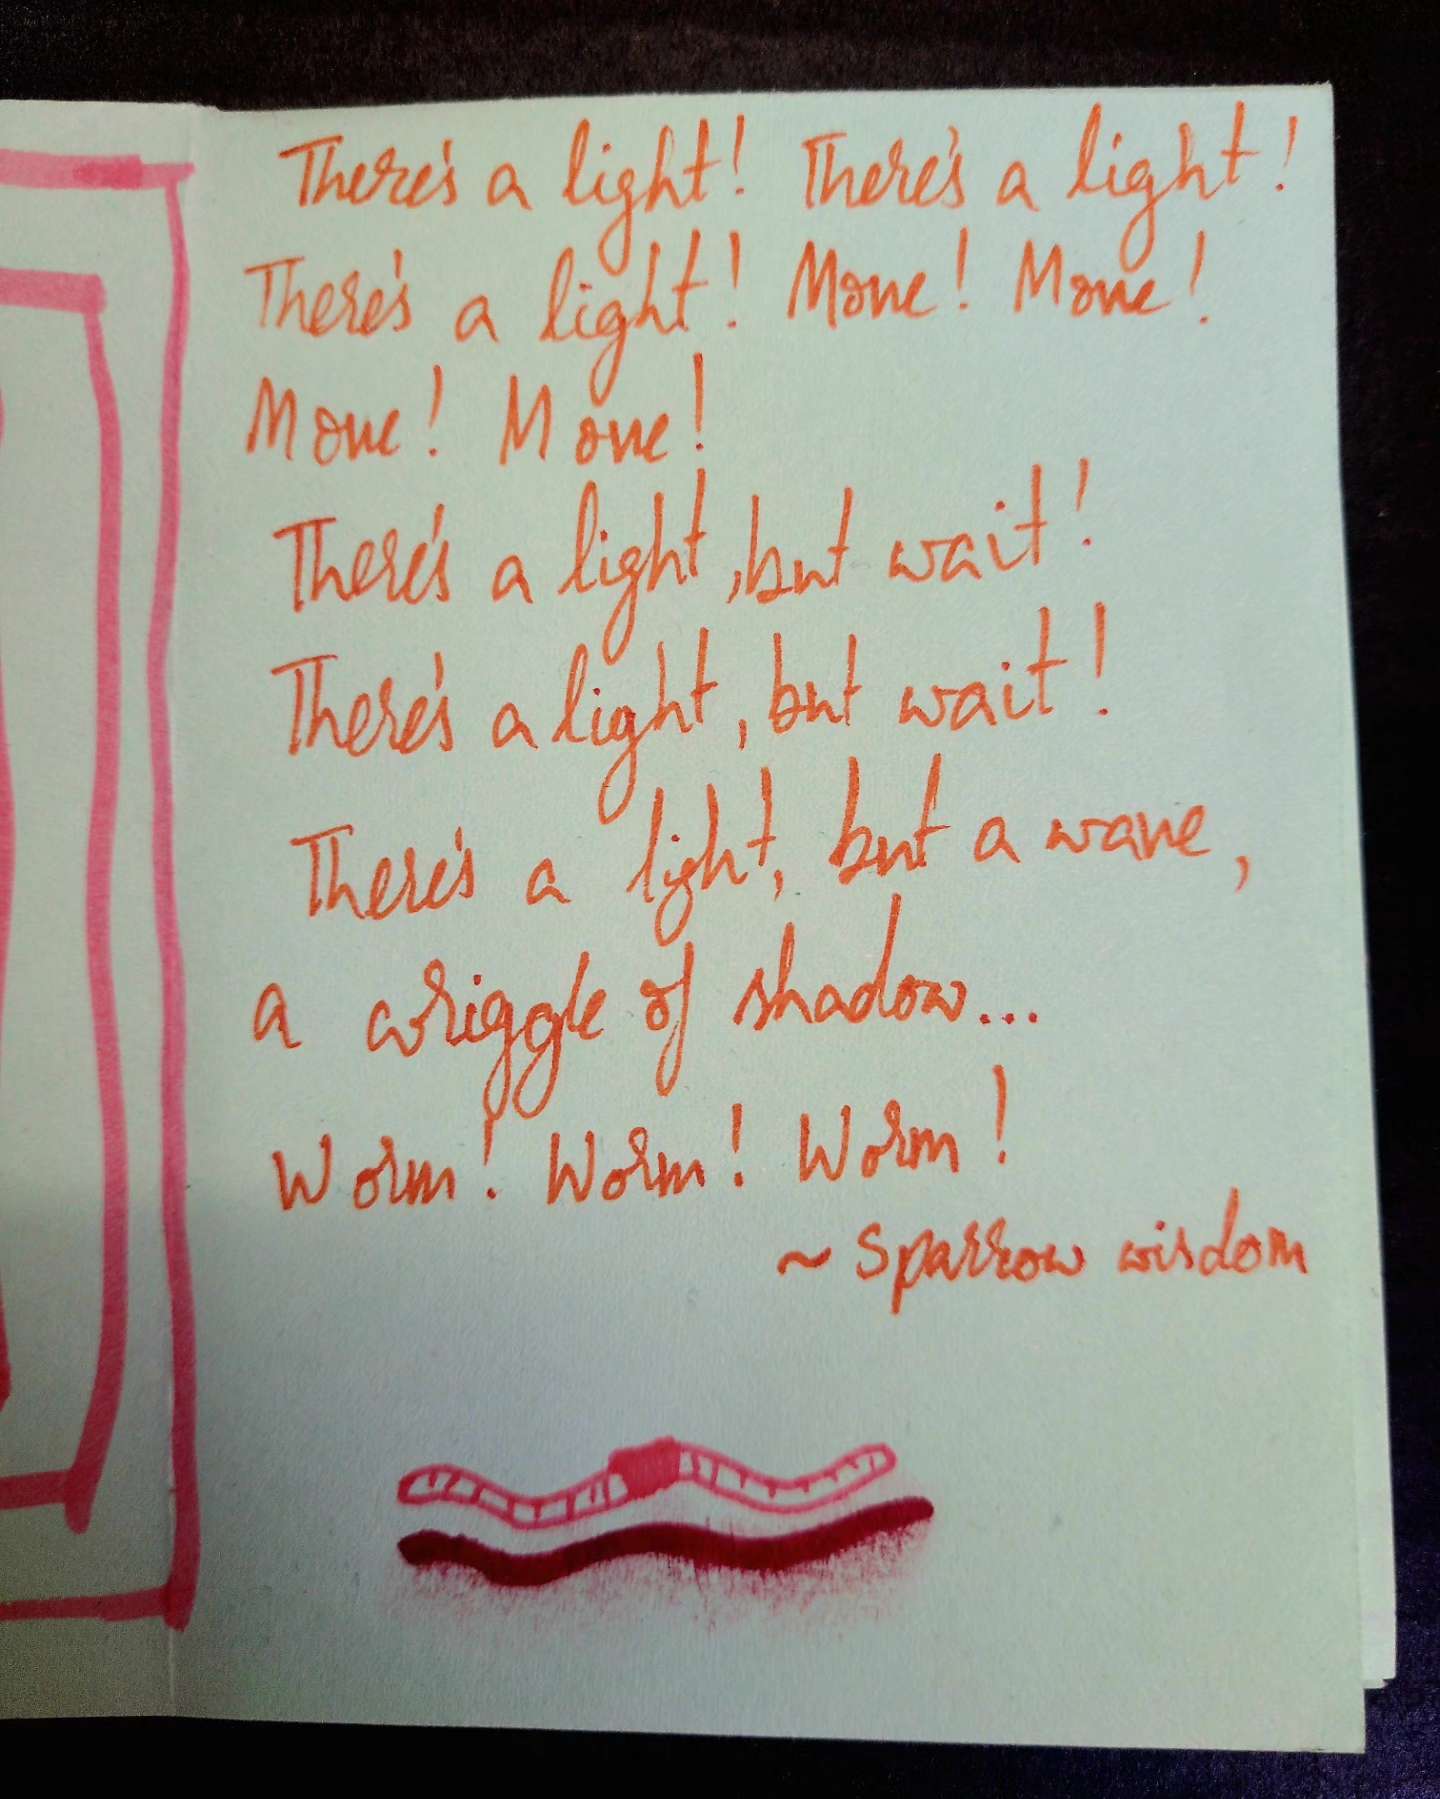 There's a light! There's a light!
There's a light! Move! Move!
Move! Move!
There's a light, but wait!
There's a light, but wait!
There's a light, but a wave,
a wriggle of shadow...
Worm! Worm! Worm!
~ Sparrow wisdom